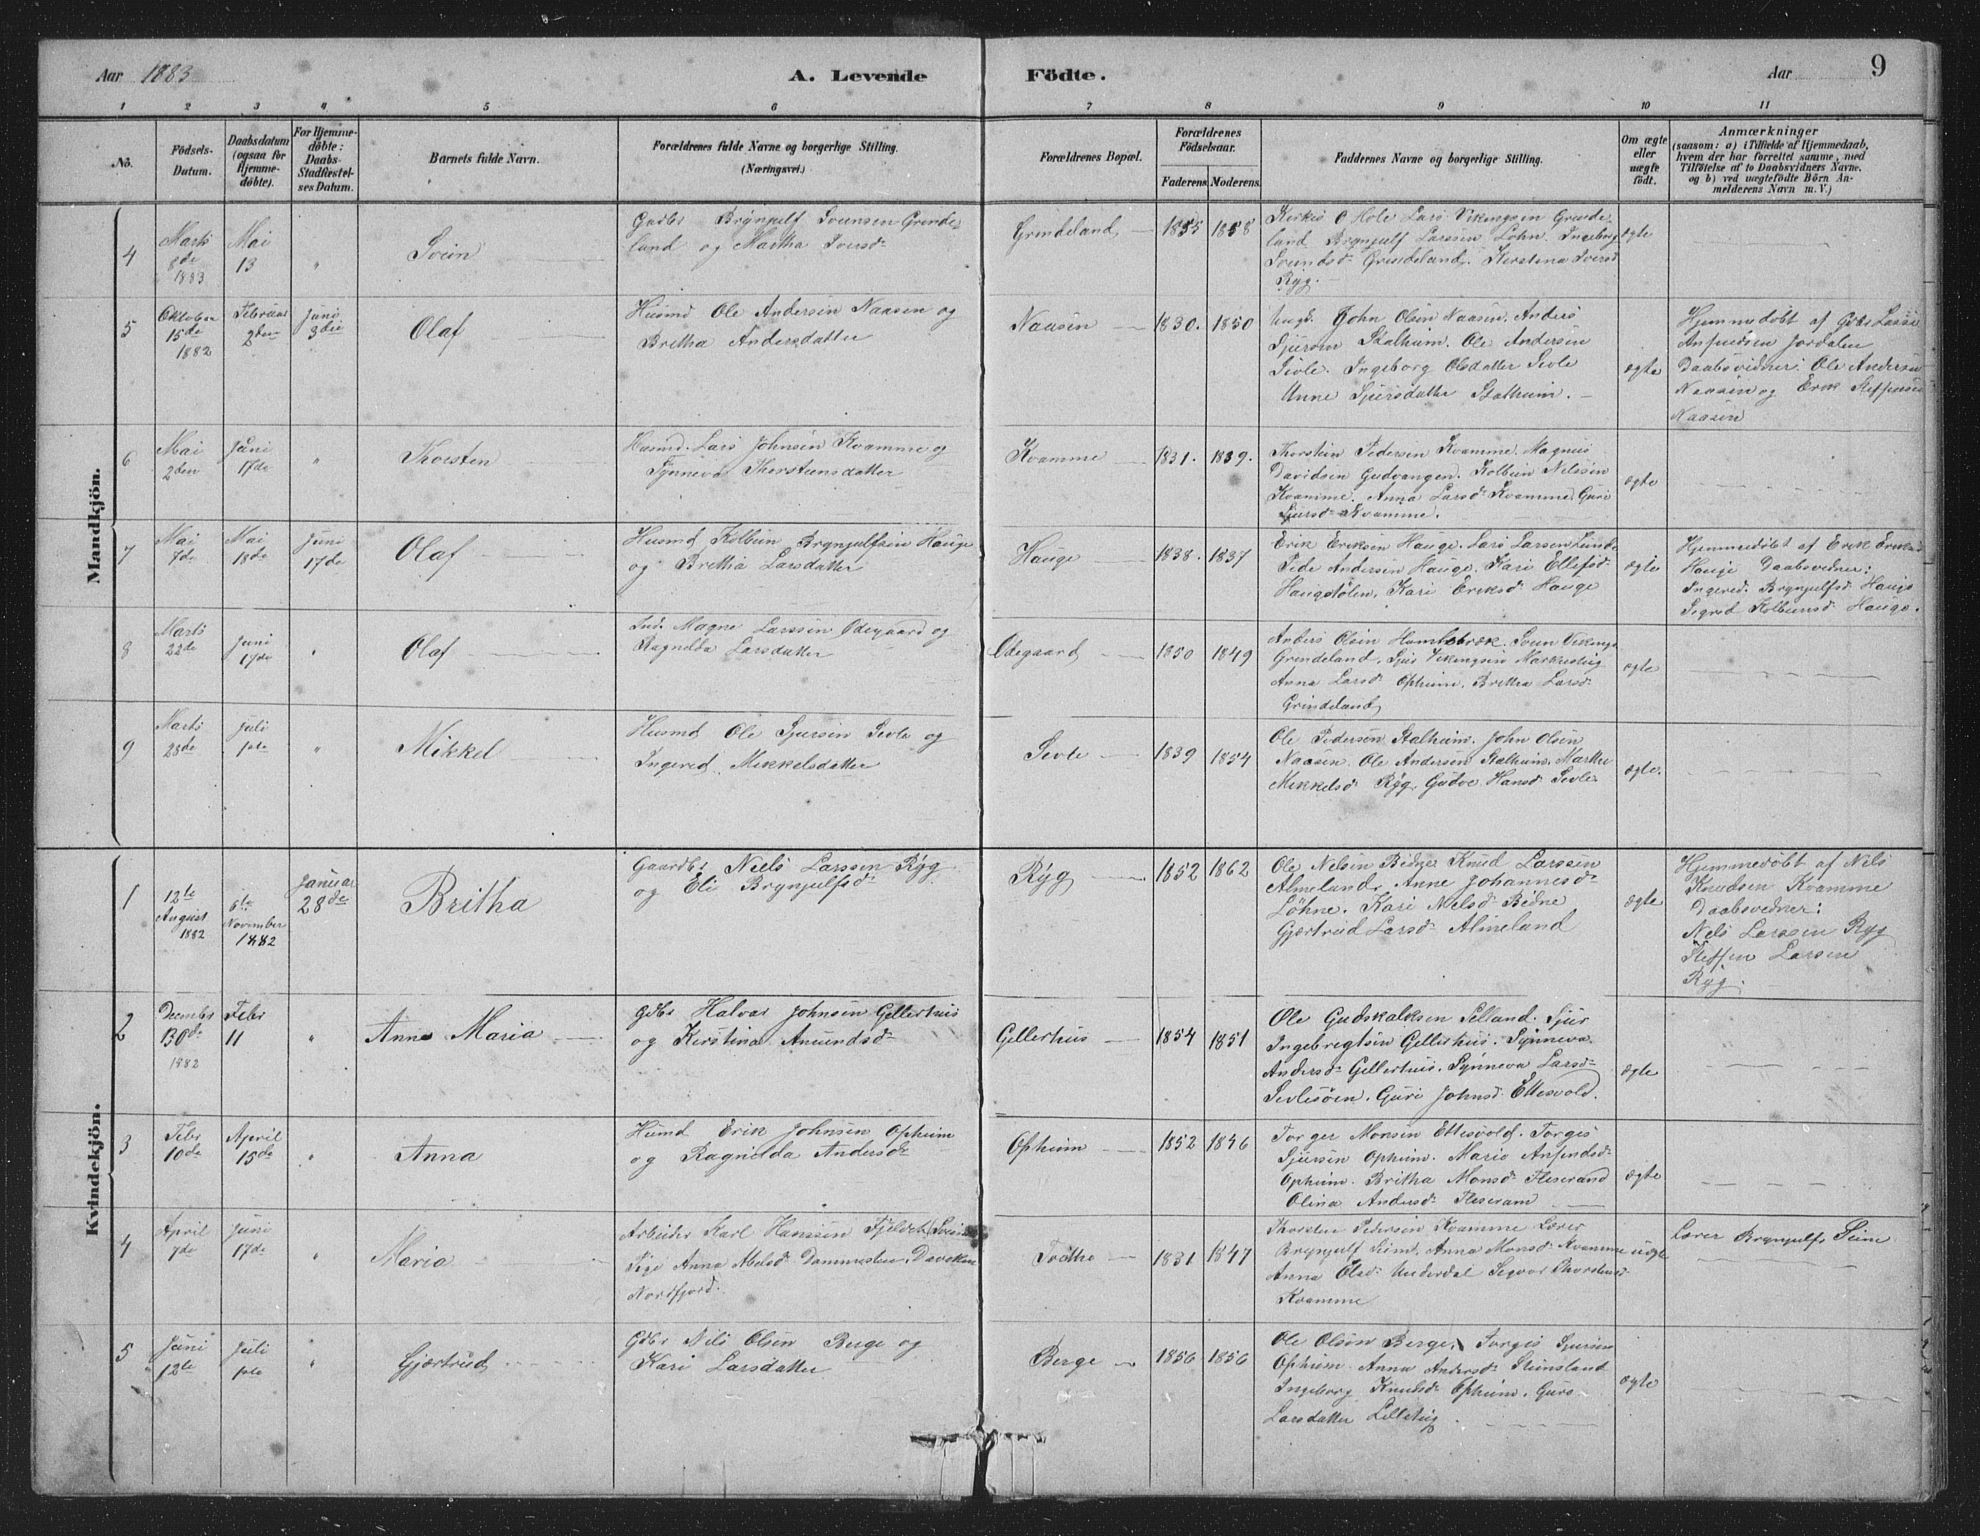 Aar 1883
A. Levende Födte.
Aar
9
1 2 3 4 5 6 7 8 9 10 11
No.
Födsels-
Datum.
Daabsdatum
(ogsaa for
Hjemme-
döbte).
For Hjemme-
döbte:
Daabs-
Stadfæstel-
ses Datum.
Barnets fulde Navn.
Forældrenes fulde Navne og borgerlige Stilling.
(Næringsvei.)
Forældrenes Bopæl.
Forældrenes
Födselsaar.
Faderens. Moderens.
Faddernes Navne og borgerlige Stilling.
Om ægte
eller
uægte
födt.
Anmærkninger
(saasom: a) i Tilfælde af Hjemmedaab,
hvem der har forrettet samme, med
Tilföielse af to Daabsvidners Navne,
og b) ved uægtefödte Börn An-
melderens Navn m. V.)
Mandkjön.
4
Marts
8de
1883
Mai
13
"
Svein
Gaibr Brynjulf Sveinsen Grinde-
land og Martha Iversd.
Grindeland
1855 1858
Lars Vikingsen Grinde-
land Brynjulf Larssen Löhn. Ingeborg
Sveinsd. Grindeland. Kerstina Iversd
Ryg.
ægte
5
Oktober
15de
1882
Februar
2den
Juni
3die
Olaf
Husmd Ole Andersen Naasen og
Britha Andersdatter
Naasen
1830. 1850
Ungk. John Olsen Naasen. Anders
Sjursen Stalheim. Ole Andersen
Sevle. Ingeborg Olsdatter Sevle
Anne Sjursdatter Stalheim.
ægte
Hjemmedöbt af Gbr Lasse
Anfindsen Jordalen
Daabsvidner: Ole Andersen
Naasen og Erik Steffensen
Naasen
6
Mai
2den
Juni
17de
"
Thorsten
Husmd. Lars Johnsen Kvamme og
Synneva Thorsteinsdatter
Kvamme
1831. 1839.
Thorstein Pedersen Kvamme. Magnus
Davidsen Gudvangen. Kolbein Nilssen
Kvamme. Anna Larsd. Kvamme. Guri
Sjursd. Kvamme.
ægte
7
Mai
7de
Mai
18de
Juni
17de
Olaf
Husmd Kolbein Brynjulfsen Hauge
og Britha Larsdatter
Hauge
1838. 1837
Erik Eriksen Hauge. Lars Larsen Lunde
Peder Andersen Hauge. Kari Ellefsd.
Haugstölen. Kari Eriksd. Hauge
ægte
Hjemmedöbt af Erik Eriksen
Hauge Daabsvidner:
Ingerid Brynjulfsd. Hauge
Sigrid Kolbeinsd. Hauge.
8
Marts
22de
Juni
17de
"
Olaf
Ind. Magne Larssen Ödegaard og
Ragnilda Larsdatter
Ödegaard
1850 1849
Anders Olsen Humlebræk. Svein Vikings
Grindeland. Sjur Vikingsen Markestig
Anna Larsd. Opheim. Britha Larsd.
Grindeland
ægte
9
Marts
28de
Juli
1ste
"
Mikkel
Husmd Ole Sjursen Sevle og
Ingerid Mikkelsdatter
Sevle
1839 1854
Ole Pedersen Stalheim. John Olsen
Naasen. Ole Andersen Stalheim. Martha
Mikkelsd. Ryg. Gudve Hansd. Sevle
ægte.
Kvindekjön.
1
12te
August
1882
6te
November
1882
Januar
28de
Britha
Gaardbr Niels Larssen Ryg
og Eli Brynjulfsd.
Ryg
1852 1862
Ole Nelsen Bidne Knud Larssen
Almeland. Anne Johannesd.
Löhne. Kari Nelsd. Bidne
Gjertrud Larsd. Almeland
ægte
Hjemmedöbt af Nils
Knudsen Kvamme
Daabsvidner:
Nels Larssen Ryg
Steffen Larsen
Ryg.
2
December
30de
1882
Febr
11
"
Anna Maria
Gdbr Halvar Johnsen Gellerhus
og Kerstina Amundsd.
Gellerhus
1854 1851
Ole Gudskalksen Selland. Sjur
Ingebregtsen Gellerhus. Synneva
Andersd. Gellerhus. Synneva Larsd.
Sevlesöen. Guri Johnsd. Ettesvold.
ægte
3
Febr
10de
April
15de
"
Anna
Husmd Erik Johnsen Opheim
og Ragnilda Andersd.
Opheim
1852 1846
Torger Monsen Ettesvold. Torgis
Sjursen Opheim. Mario Anfindsd.
Opheim. Britha Monsd. Fleserand
Olina Andersd. Fleseram
ægte
4
April
7de
Juni
17de
"
Maria
Arbeider Karl Hanssen
Pige Anna Abelsd. Dammesten. Daviken
Nordfjord.
Tvithe
1831 1847
Thorsten Pedersen Kvamme Lærer
Brynjulf Seim. Anna Monsd. Kvamme
Anna Olsd. Underdal Thorsteinsd
Kvamme
uægte
Lærer Brynjulf Seim
5
Juni
12te
Juli
1ste
"
Gjertrud
Gdbr Nils Olsen Berge og
Kari Larsdatter
Berge
1856 1856
Ole Olsen Berge. Torgis Sjursen
Opheim. Anna Andersd. Stimsland
Ingeborg Knudsd. Opheim. Guro
Larsdatter Lillethig
ægte